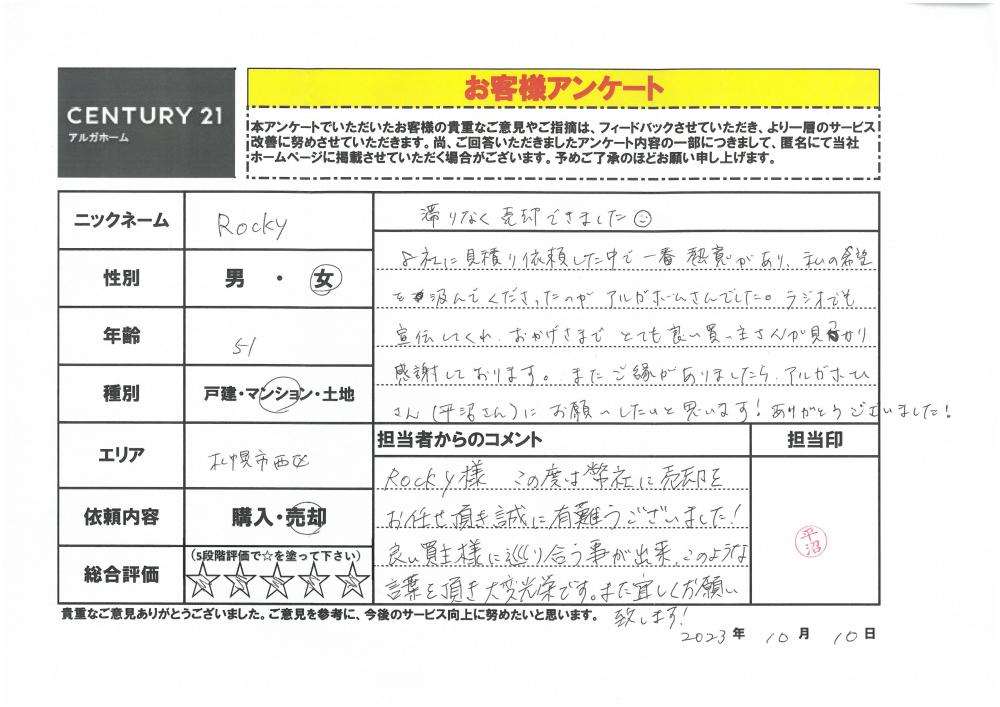 CENTURY 21
アルガホーム
お客様アンケート
本アンケートでいただいたお客様の貴重なご意見やご指摘は、フィードバックさせていただき、より一層のサービス
改善に努めさせていただきます。尚、ご回答いただきましたアンケート内容の一部につきまして、匿名にて当社
ホームページに掲載させていただく場合がございます。予めご了承のほどお願い申し上げます。
ニックネーム
Rocky
性別
男 ・ 女
年齢
51
種別
戸建・マンション・土地
エリア
札幌市西区
依頼内容
購入・売却
総合評価
(5段階評価で☆を塗って下さい)
滞りなく売却できました
5社に見積り依頼した中で一番熱意があり、私の希望
を汲んでくださったのがアルガホームさんでした。ラジオでも
宣伝してくれ、おかげさまでとても良い買い主さんが見つかり
感謝しております。またご縁がありましたら、アルガホーム
さん(平沼さん)にお願いしたいと思います!ありがとうございました!
担当者からのコメント
担当印
Rocky様 この度は弊社に売却を
お任せ頂き誠に有難うございました!
良い買主様に巡り合う事が出来、このような
言葉を頂き大変光栄です。また宜しくお願い
致します!
平沼
貴重なご意見ありがとうございました。ご意見を参考に、今後のサービス向上に努めたいと思います。
2023年 10月 10日